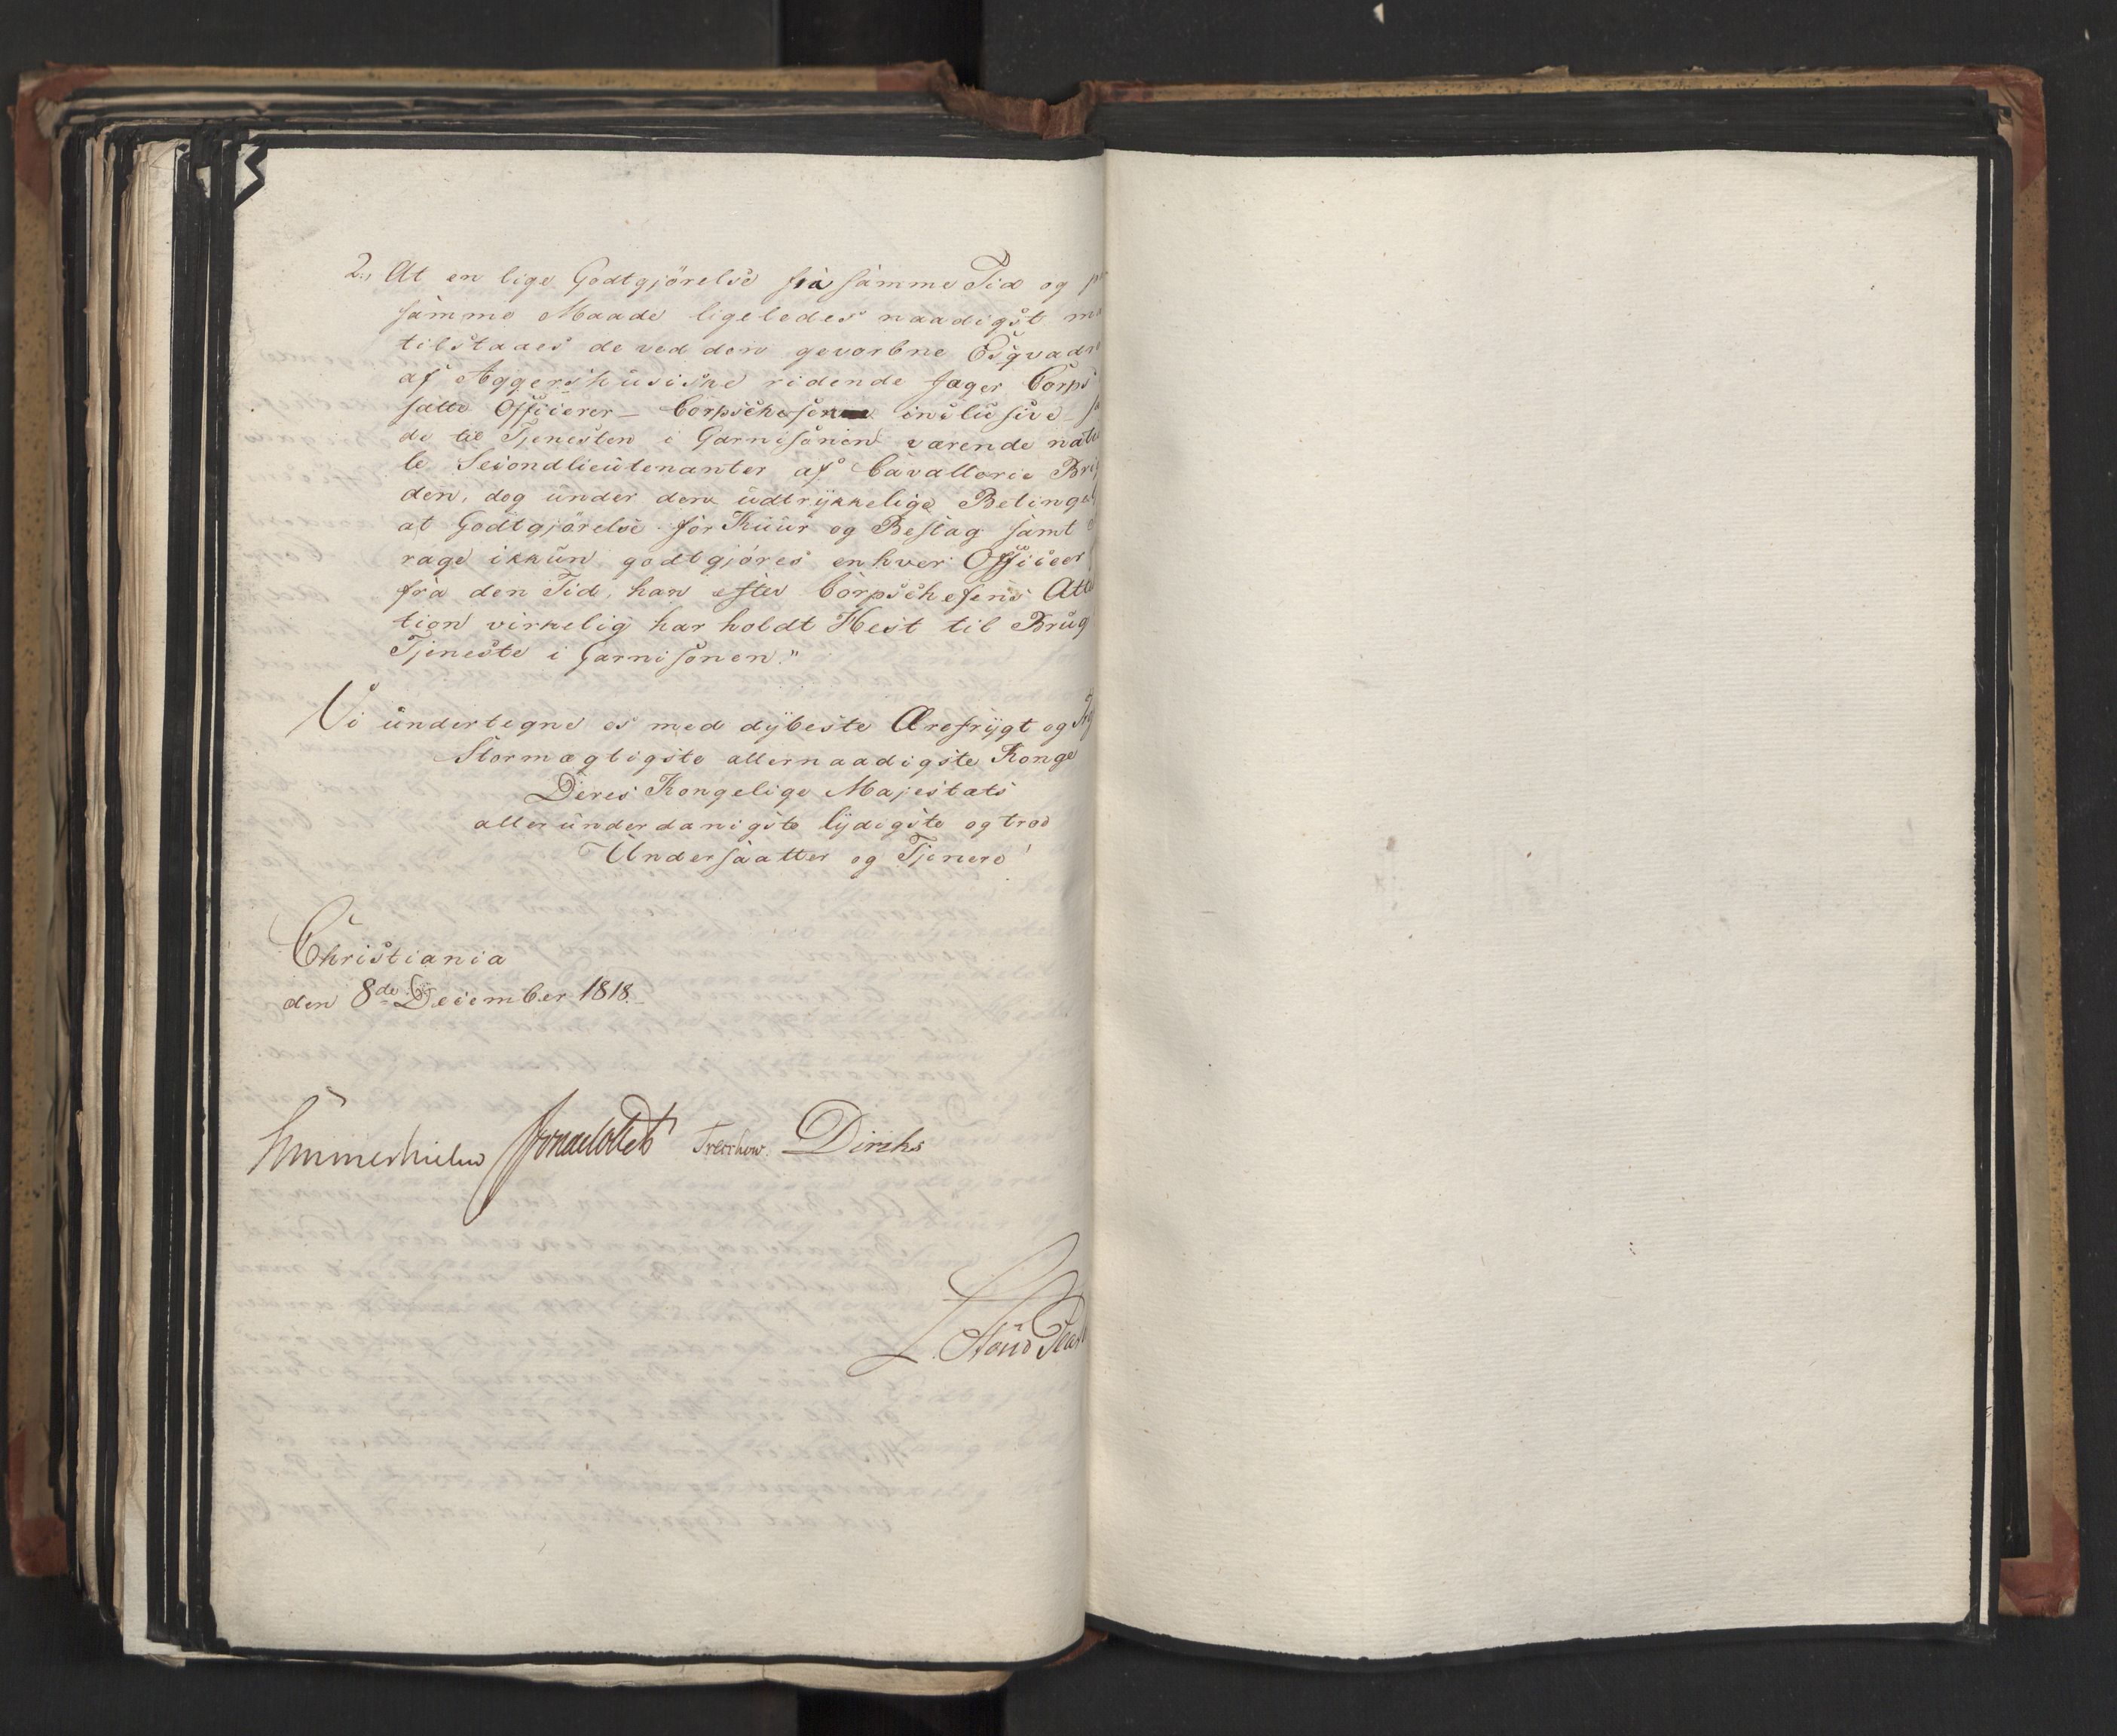 2., At en lige Godtgjörelse fra samme Tid og
samme Maade ligeledes naadigst
tilstaaes de ved den gevorbne Esqvadr
af Aggershusiske ridende Jæger Corps
satte Officierer – Corpschefen inclusive –
de til Tjenesten i Garnisonen værende
le Secondlieutenanter af Cavallerie Brig
den, dog under den udtrykkelige Beting
at Godtgjörelse for Kuur og Beslag samt
rage ikkun godtgjöres enhver Officeer
fra den Tid, han efter Corpschefens Atte
tion virkelig har holdt Hest til Brug
Tjeneste i Garnisonen."
Vi undertegne os med dybeste Ærefrygt og
Stormægtigste allernaadigste Konge
Deres Kongelige Majestæts
allerunderdanigste lydigste og troe
Undersaatter og Tjenere
Christiania
den 8de December 1818.
Sommerhielm Treschow. Diriks